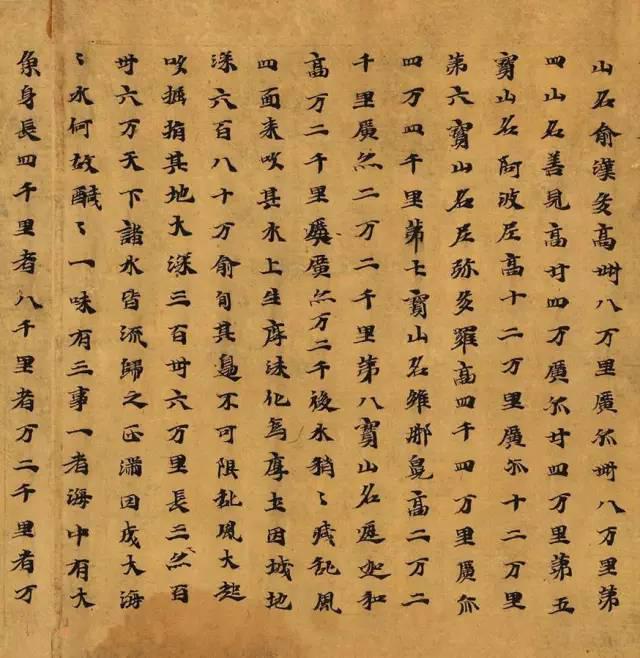 山名俞漢多高卌八万里廣亦卌八万里第
四山名善見高廿四万廣亦廿四万里第五
寶山名阿波尼高十二万里廣亦十二万里
第六寶山名尼弥多羅高四千四万里廣亦
四万四千里第七寶山名維那兜高二万二
千里廣亦二万二千里第八寶山名遮迦和
高万二千里廣亦万二千後水稍〻殘亂風
四面来吹其水上生摩沫化為摩土因城地
深六百八十万俞旬其邊不可限亂風大起
吹指其地大深三百卅六万里長三亦百
卅六万天下諸水皆流歸之正滿因成大海
〻水何故醎〻一味有三事一者海中有大
魚身長四千里者八千里者万二千里者万